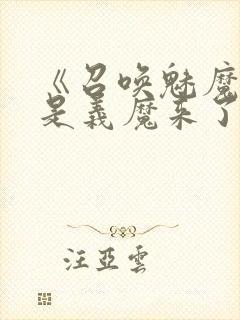 《召唤魅魔
是義魔来了
汪亞雲